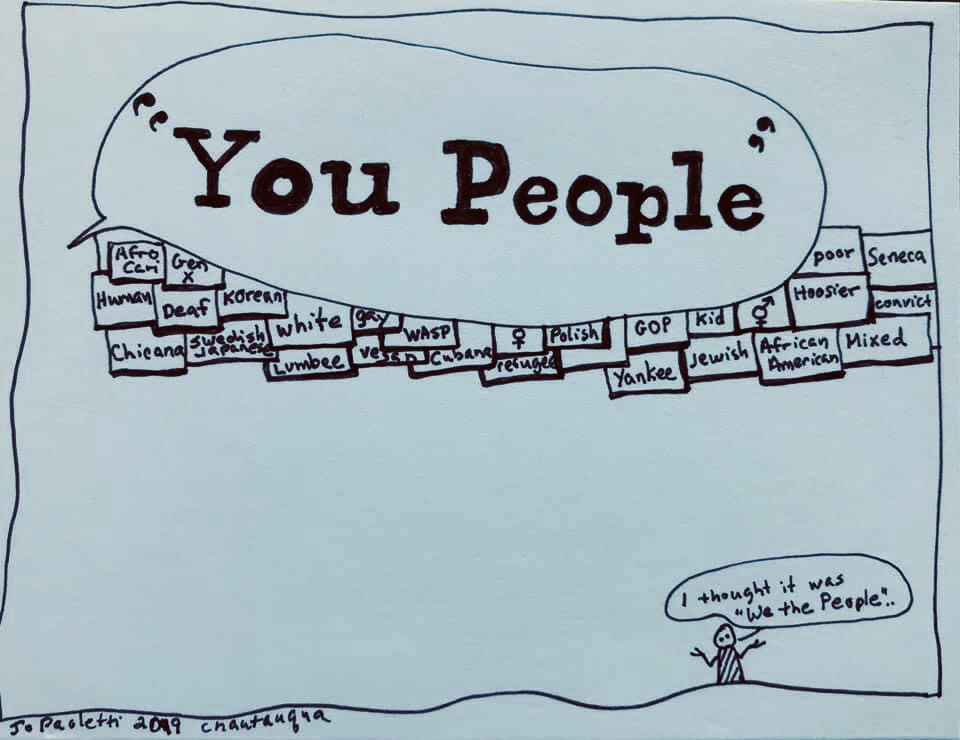 “You People”
Afro
Cari
Gen
X
poor
Seneca
Human
Deaf
Korean
white
gay
WASP
♀
Polish
GOP
Kid
⚥
Hoosier
convict
Chicana
Swedish
Japanese
Lumbee
vegan
Cubana
refugee
Yankee
Jewish
African
American
Mixed
I thought it was
"We the People"..
Jo Paoletti 2019 Chautauqua